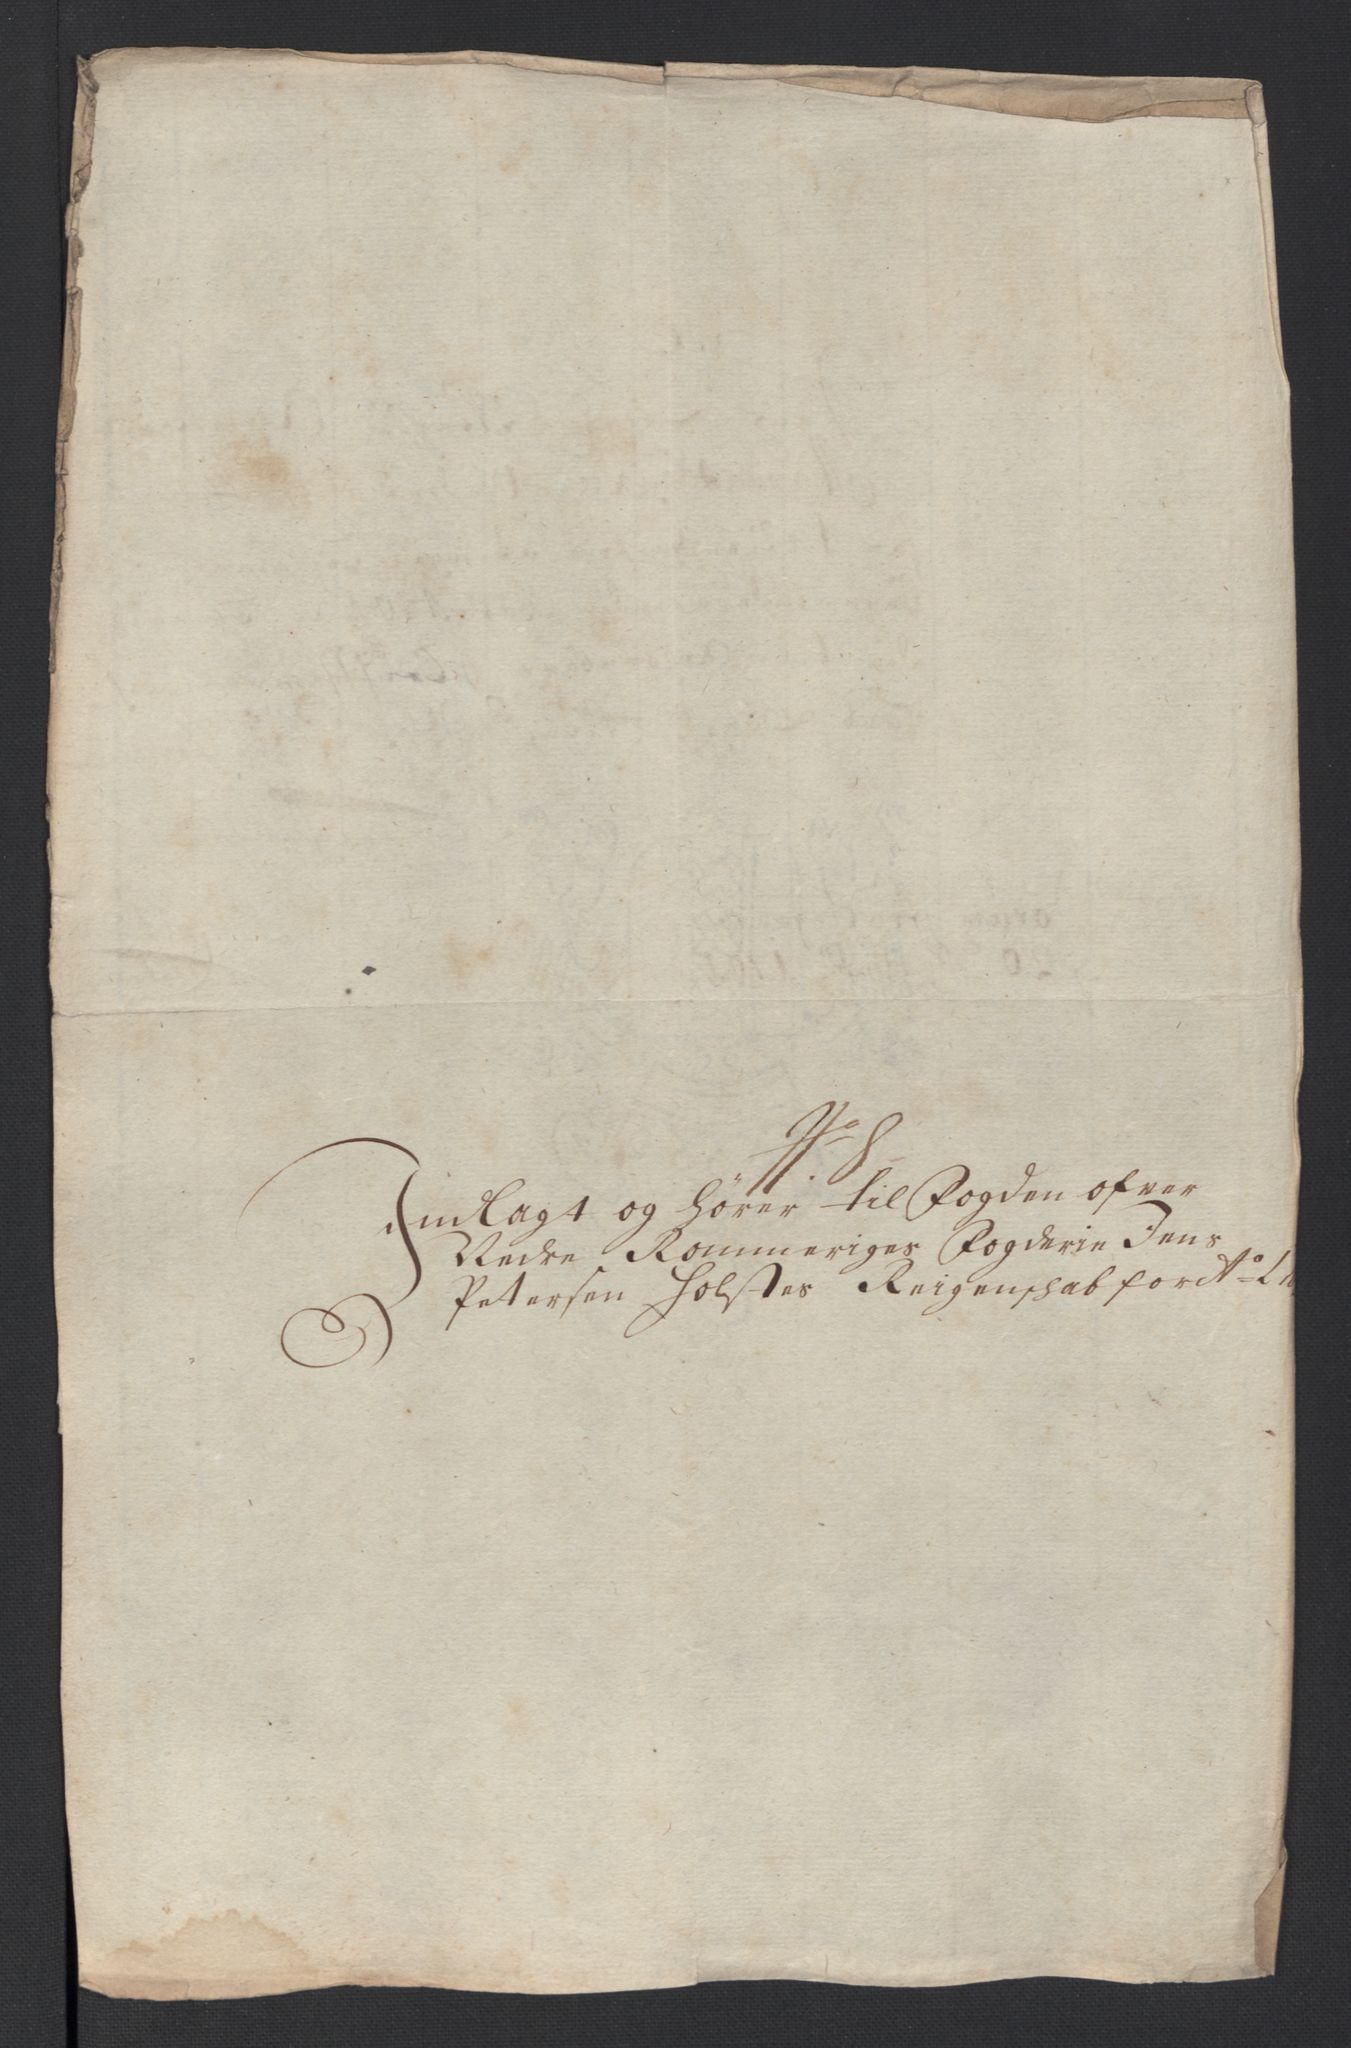 No 8.
Indlagt og hörer til Fogden ofver
Nedre Rommeriges Fogderie Jens
Petersen Holstes Reigenschab for Ao